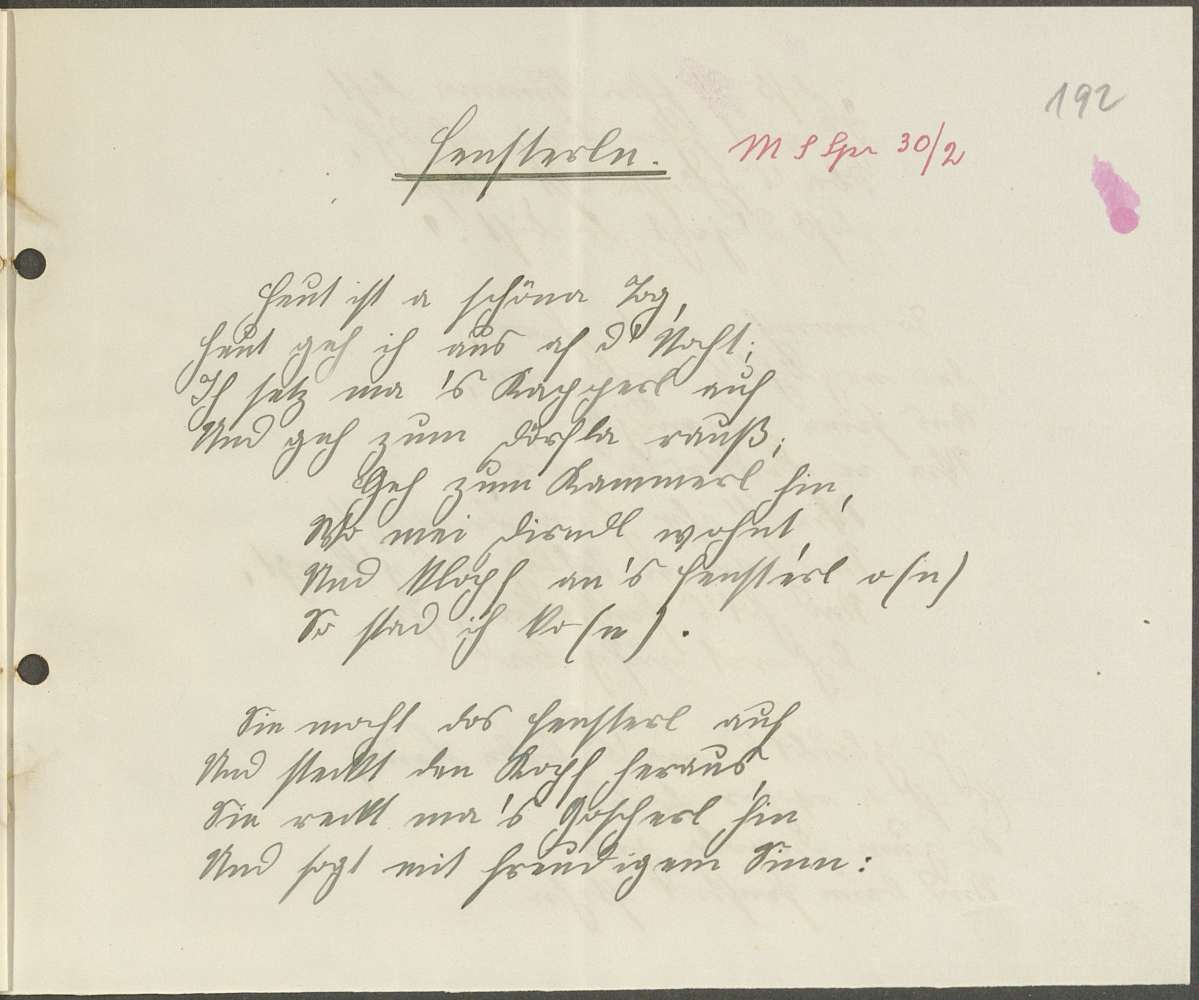 192
Fensterln.
M S Spr 30/2
Heut ist a schöna Tag,
Heut geh ich aus af d' Nacht;
Ich setz ma 's Kapperl auf
Und geh zum Dörfla rauß;
Geh zum Kammerl hin,
Wo mei Dirndl wohnt,
Und klopf an's Fensterl o(n)
So stad ich ko(n).
Sie macht das Fensterl auf
Und steckt den Kopf heraus,
Sie reckt ma 's Goscherl hin
Und sagt mit freudigem Sinn: